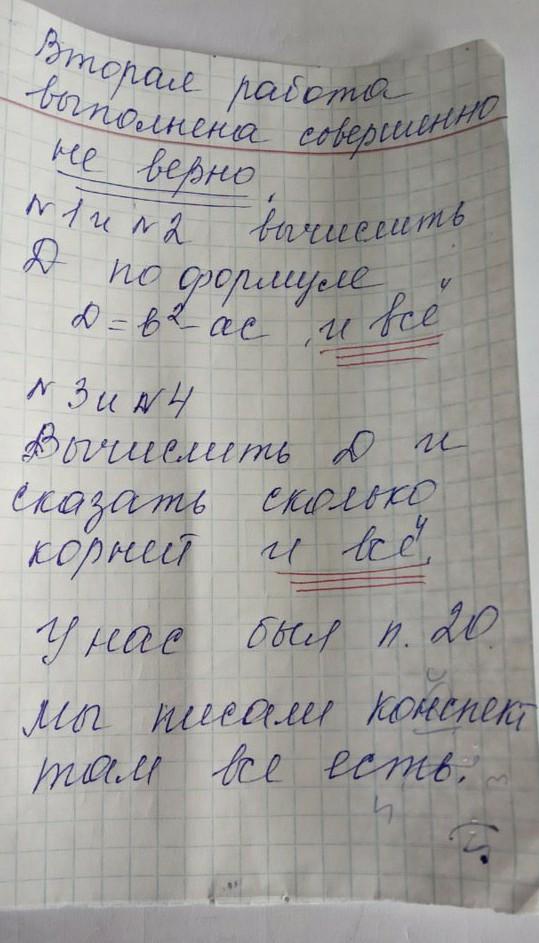 Вторая работа
выполнена совершенно
не верно.
N1 и N2 вычислить
D по формуле
D = b² - ac „и всё"
N3 и N4
Вычислить D и
сказать сколько
корней „и всё".
У нас был п. 20.
Мы писали конспект
там все есть.